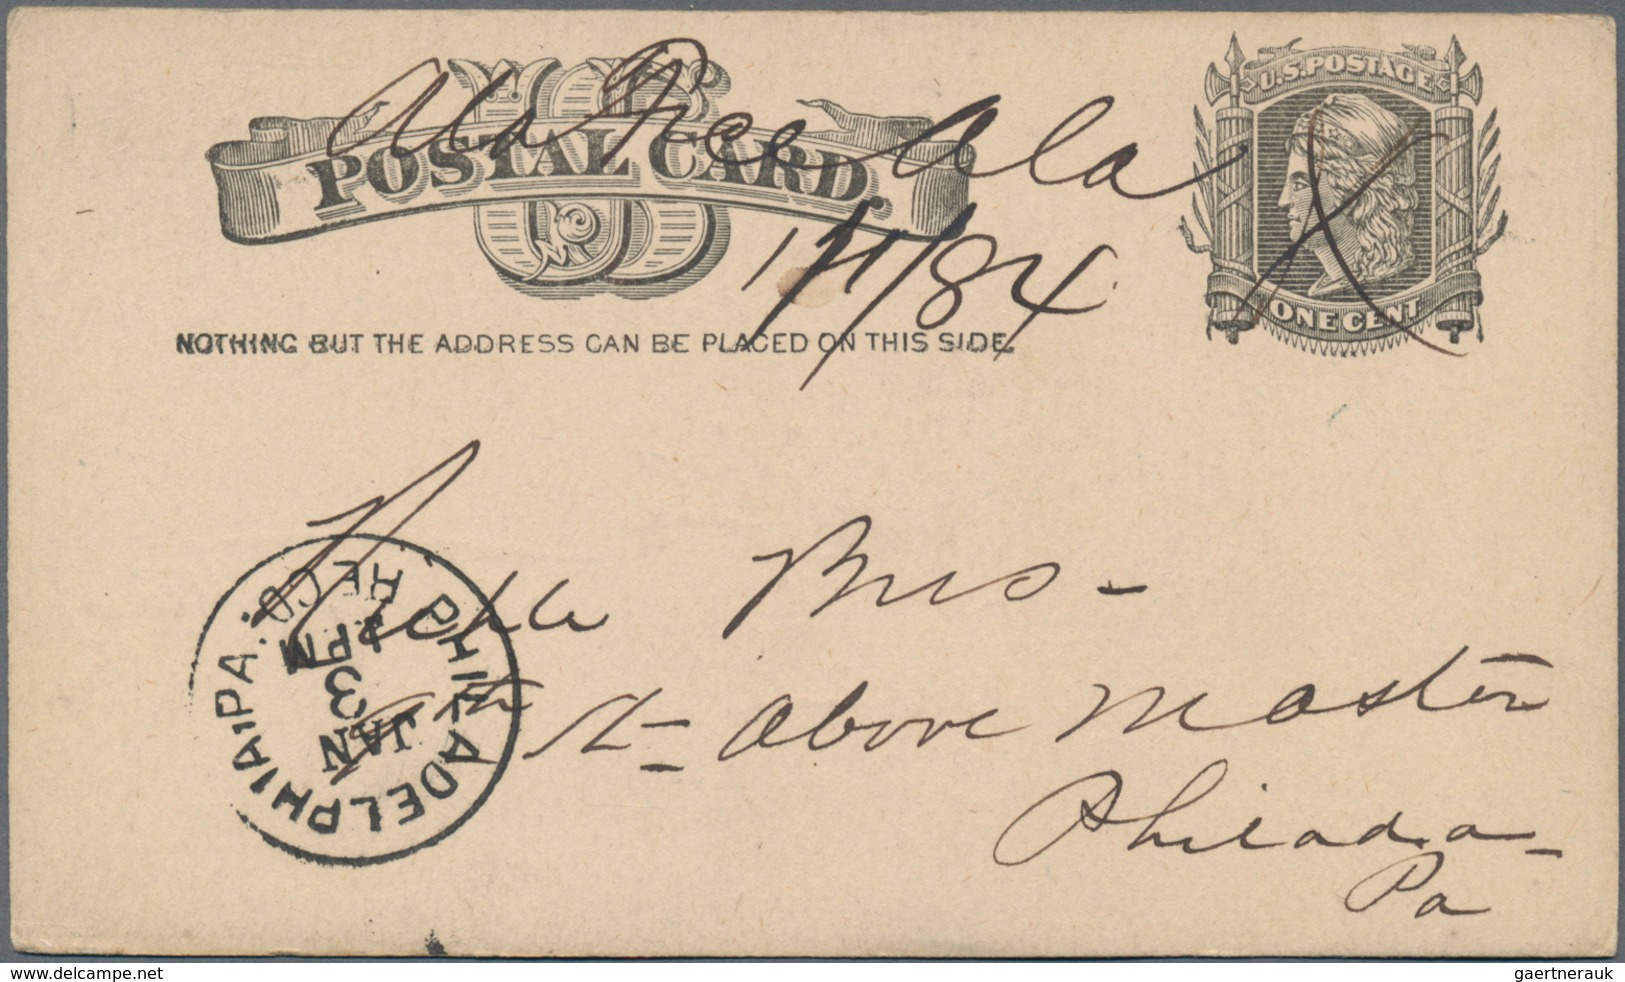 Price Ala
POSTAL CARD.
US
U.S. POSTAGE
ONE CENT
1/1/84
NOTHING BUT THE ADDRESS CAN BE PLACED ON THIS SIDE.
Bros-
St- above Master
Philada-
Pa
PHILADELPHIA, PA.
REC'D.
JAN
3
PM
www.delcampe.net
gaertnerauk